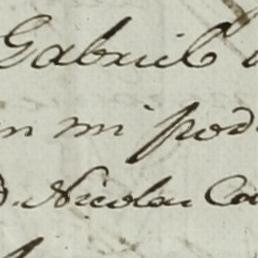 Gabriel
en mi pod
D. Nicolas Ca